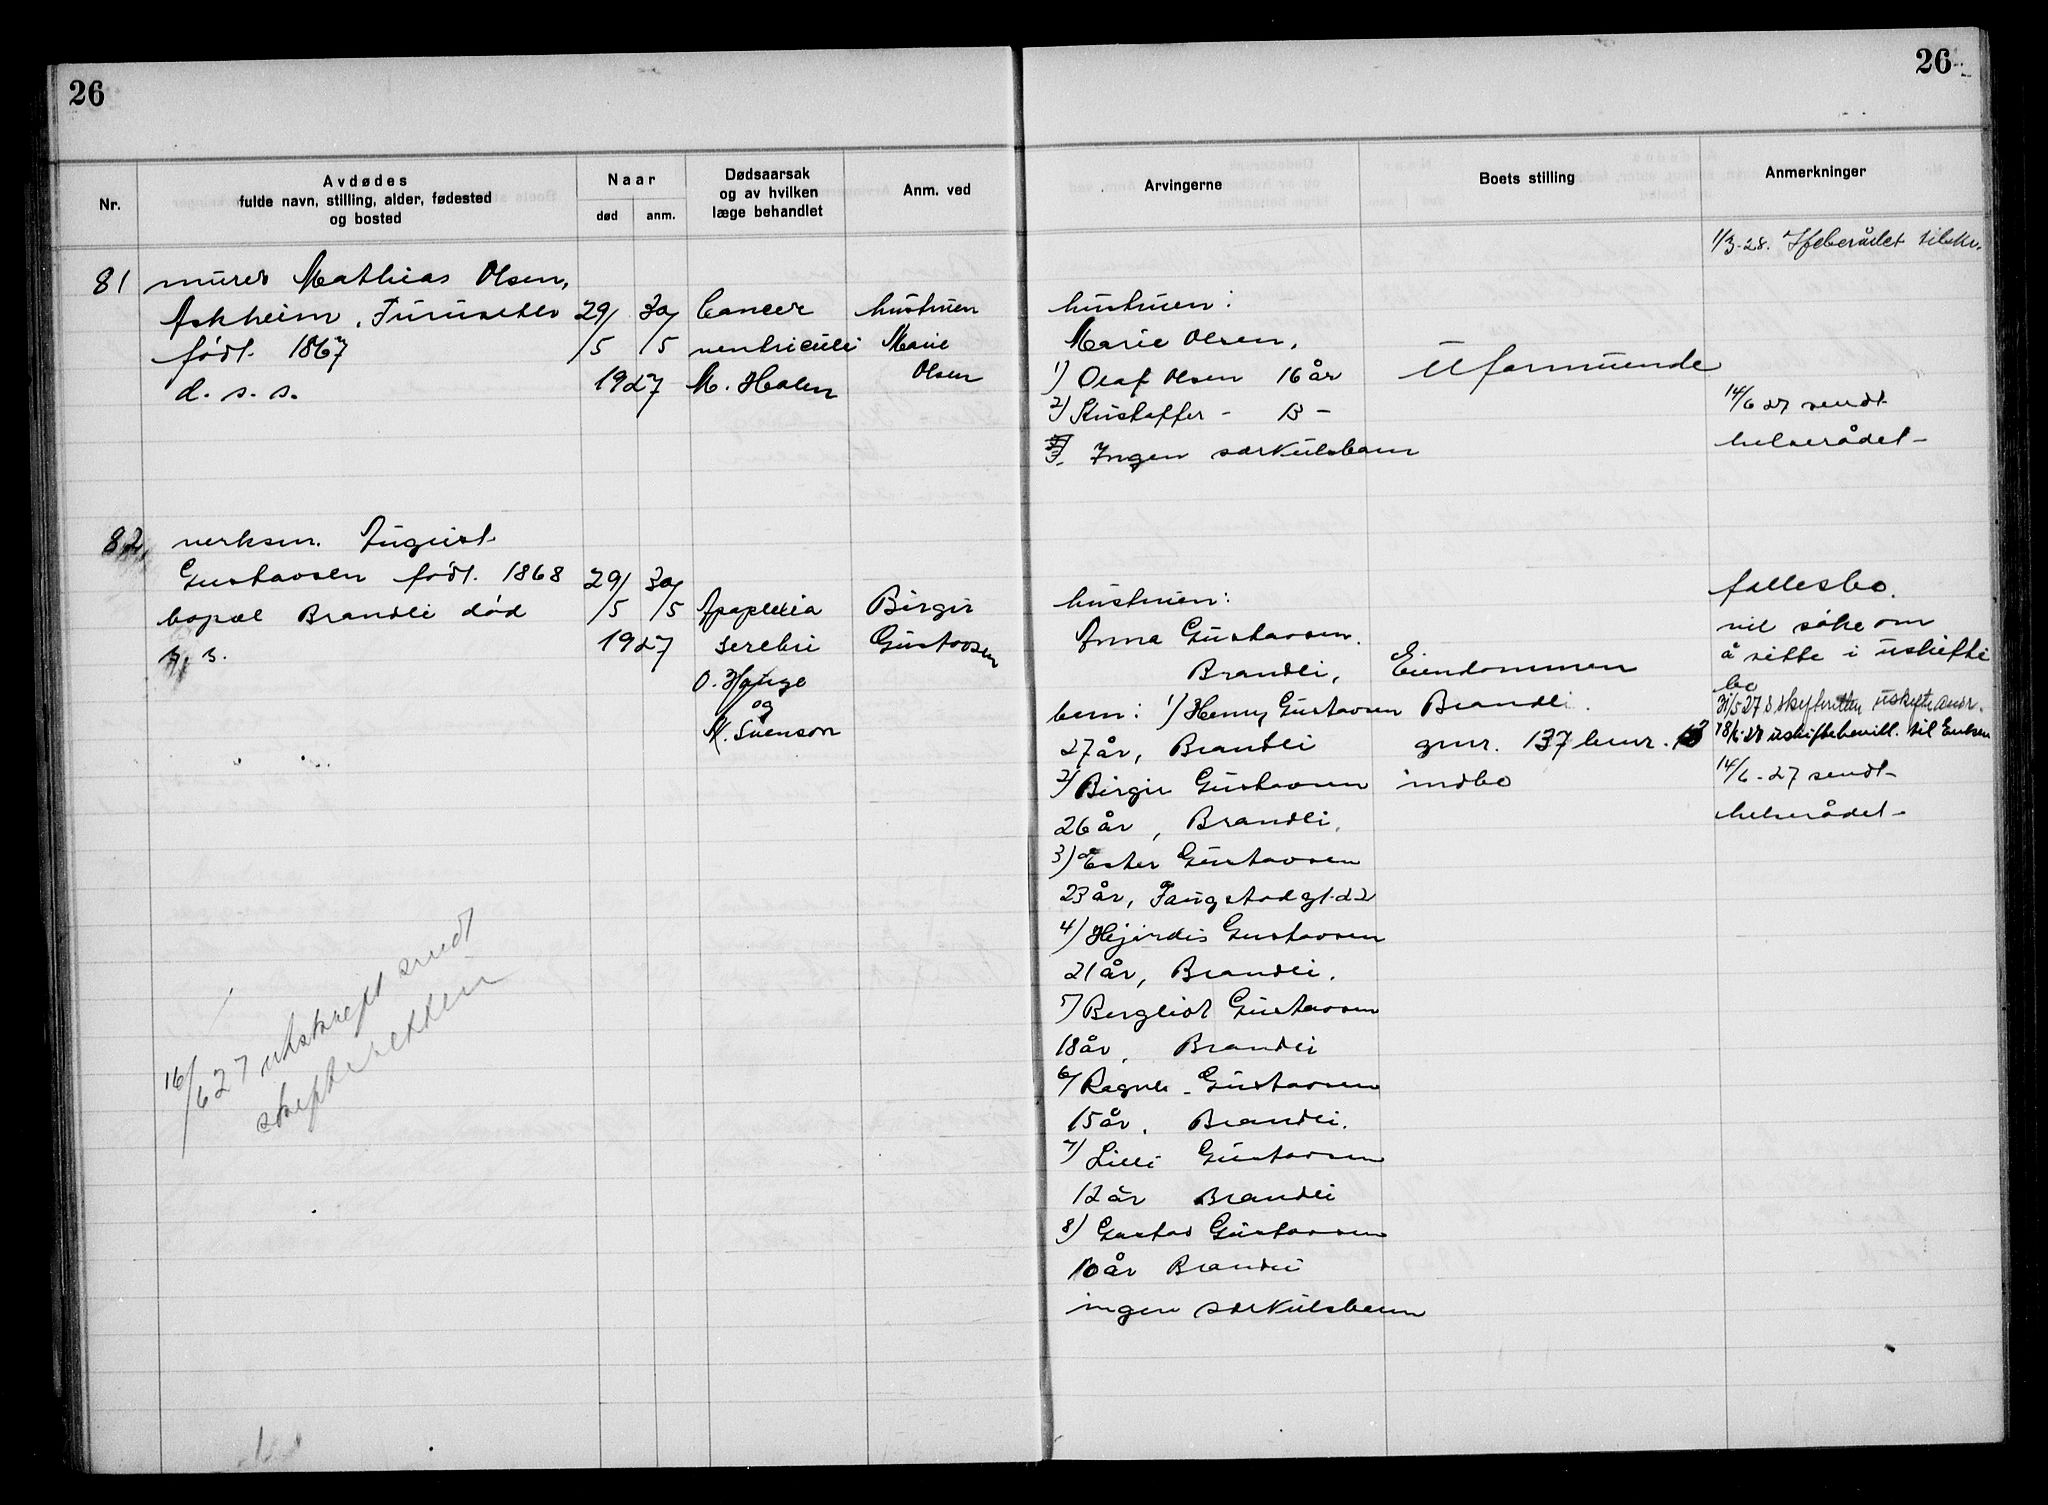 26
26
Nr.
Avdødes
fulde navn, stilling, alder, fødested
og bosted
Naar
død
anm.
Dødsaarsak
og av hvilken
læge behandlet
Anm. ved
Arvingerne
Boets stilling
Anmerkninger
81
murer Mathias Olsen,
Askheim, Furuseter
født 1867
d. s. s.
29/5 30/5
1927
Cancer
ventriculi
M. Holen
hustruen
Marie
Olsen
hustruen:
Marie Olsen,
1) Olaf Olsen 16 år
2) Kristoffer - 13 -
3. Ingen særkulsbarn
Uformuende
1/3-28.
14/6 27 sendt
helserådet
82,
verksm. August
Gustavsen født. 1868
bopæl Brandli død
s. s.
29/5 30/5
1927
Apoplexia
serebri
O. Hauge
og
M. Svenson
Birgir
Gustavsen
hustruen:
Anna Gustavsen.
Brandli,
barn: 1) Henry Gustavsen
27 år, Brandli
2) Birgir Gustavsen
26 år, Brandli,
3) Ester Gustavsen
23 år, Faugstadgt. 22
4) Hjørdis Gustavsen
21 år, Brandli.
5) Bergliot Gustavsen
18 år, Brandli
6) Ragna - Gustavsen
15 år, Brandli.
7) Lilli Gustavsen
12 år Brandli
8) Gustav Gustavsen
10 år Brandli
ingen særkulsbarn
Eiendommen
Brandli.
gnr. 137 bnr.
indbo
fællesbo.
vil søke om
å sitte i uskifte
bo
31/5 27 skifteretten
18/6-27 uskiftebevill. til Enken
14/6-27 sendt
helserådet
16/6 27 utskrift sendt
skifteretten